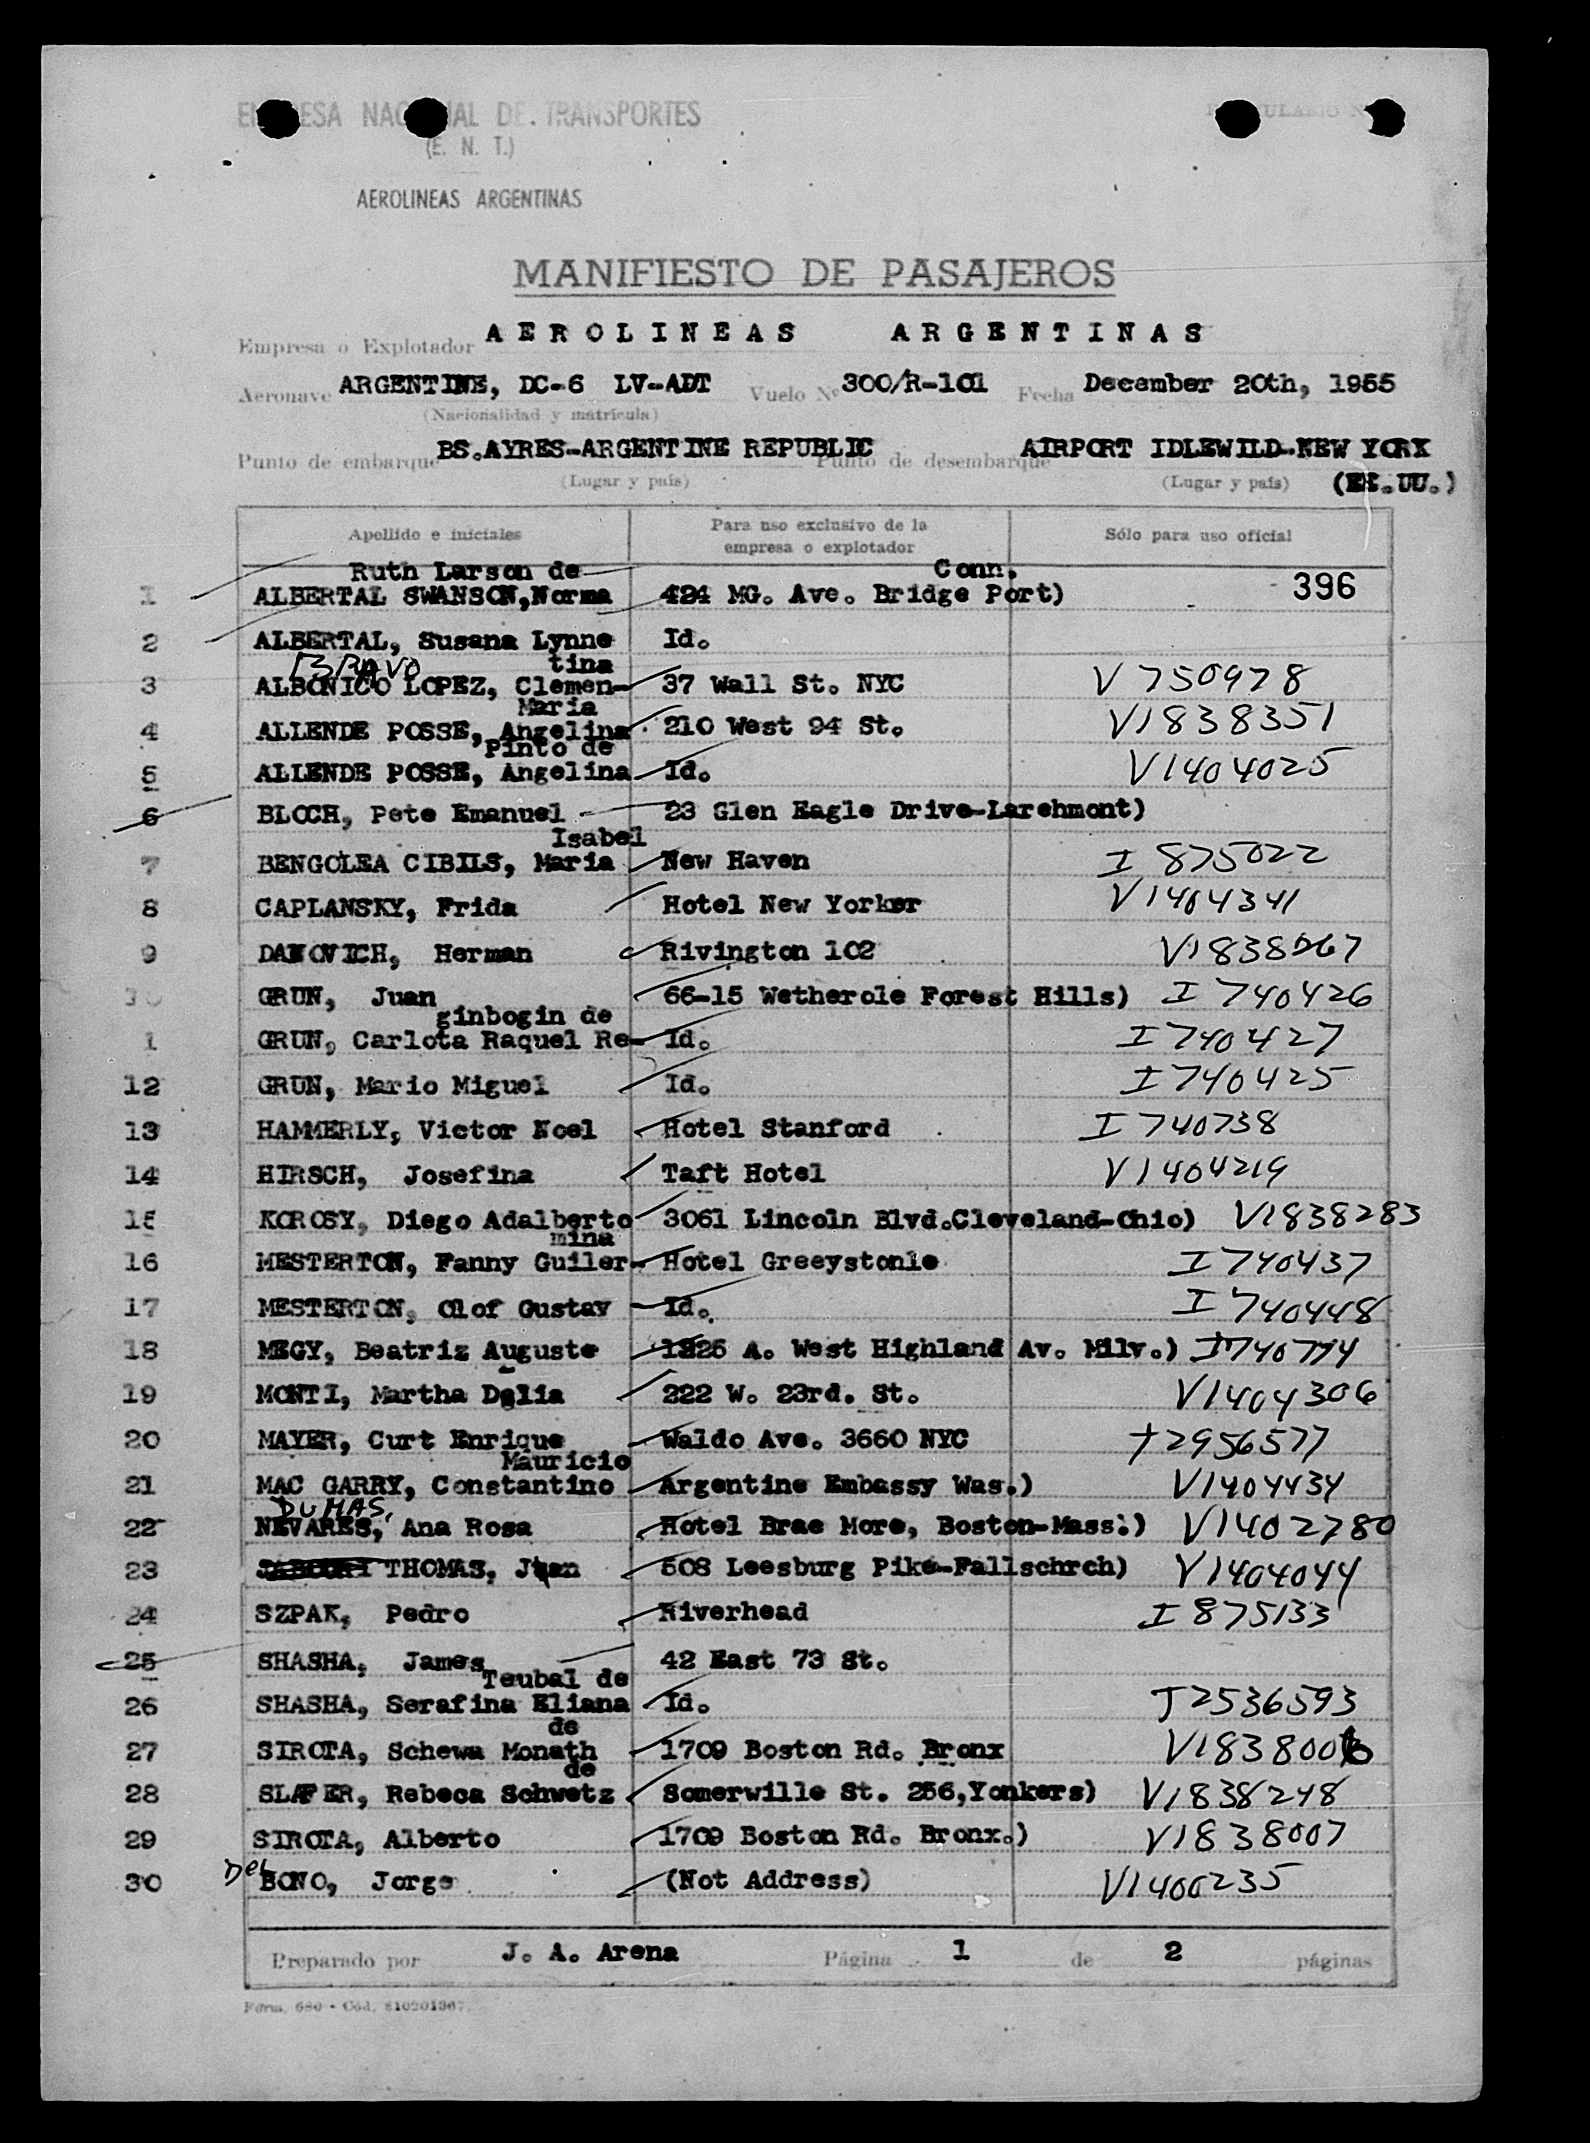 EMPRESA NACIONAL DE TRANSPORTES
(E. N. T.)
AEROLINEAS ARGENTINAS
MANIFIESTO DE PASAJEROS
Empresa o Explotador AEROLINEAS ARGENTINAS
Aeronave ARGENTINE, DC-6 LV-ADT Vuelo Nº 300/R-101 Fecha December 20th, 1955
(Nacionalidad y matrícula)
Punto de embarque BS.AYRES-ARGENTINE REPUBLIC Punto de desembarque AIRPORT IDLEWILD-NEW YORK
(Lugar y país) (Lugar y país) (EE.UU.)
Apellido e iniciales Para uso exclusivo de la empresa o explotador Sólo para uso oficial
Ruth Larson de Conn.
1 ALBERTAL SWANSON,Norma 424 MG. Ave. Bridge Port) 396
2 ALBERTAL, Susana Lynne Id.
BRAVO tina
3 ALBONICO LOPEZ, Clemen- 37 Wall St. NYC V 750978
Maria
4 ALLENDE POSSE, Angelina 210 West 94 St. V1838351
Pinto de
5 ALLENDE POSSE, Angelina Id. V1404025
6 BLOCH, Pete Emanuel 23 Glen Eagle Drive-Larehmont)
Isabel
7 BENGOLEA CIBILS, Maria New Haven I 875022
8 CAPLANSKY, Frida Hotel New Yorker V1404341
9 DANOVICH, Herman Rivington 102 V1838067
10 GRUN, Juan 66-15 Wetherole Forest Hills) I 740426
ginbogin de
1 GRUN, Carlota Raquel Re- Id. I 740427
12 GRUN, Mario Miguel Id. I740425
13 HAMMERLY, Victor Noel Hotel Stanford I 740738
14 HIRSCH, Josefina Taft Hotel V1404219
15 KOROSY, Diego Adalberto 3061 Lincoln Blvd.Cleveland-Ohio) V1838283
mina
16 MESTERTON, Fanny Guiler- Hotel Greeystonle I 740437
17 MESTERTON, Olof Gustav Id. I 740448
18 MEGY, Beatriz Auguste 1325 A. West Highland Av. Milv.) I740774
19 MONTI, Martha Delia 222 W. 23rd. St. V1404306
20 MAYER, Curt Enrique Waldo Ave. 3660 NYC T2956577
Mauricio
21 MAC GARRY, Constantino Argentine Embassy Was.) V1404434
DUHAS,
22 NEVARES, Ana Rosa Hotel Brae More, Boston-Mass.) V1402780
23 THOMAS, Juan 508 Leesburg Pike-Fallschrch) V1404044
24 SZPAK, Pedro Riverhead I 875133
25 SHASHA, James 42 East 73 St.
Teubal de
26 SHASHA, Serafina Eliana Id. T2536593
de
27 SIROTA, Schewa Monath 1709 Boston Rd. Bronx V1838006
de
28 SLAFER, Rebeca Schwetz Somerwille St. 256,Yonkers) V1838248
29 SIROTA, Alberto 1709 Boston Rd. Bronx.) V1838007
30 Del BONO, Jorge (Not Address) V1400235
Preparado por J. A. Arena Página 1 de 2 páginas
Form. 680 - Cód. 810201367